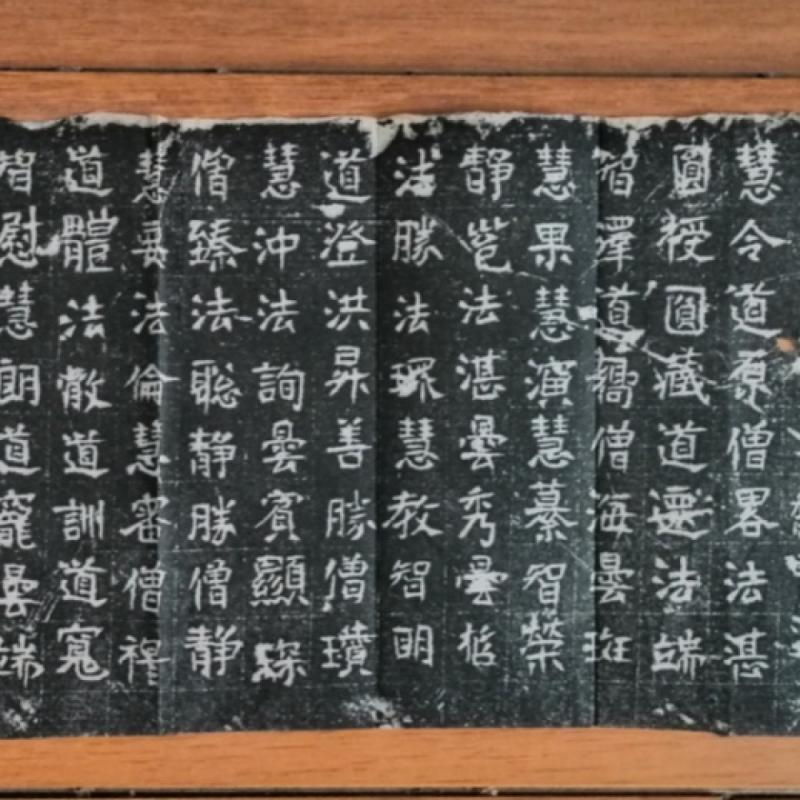 慧令道原僧畧法湛
圓授圓藏道遷法端
智澤道僧海曇班
慧果慧演慧纂智榮
靜邕法湛曇秀曇哲
法勝法琛慧教智明
道澄洪昇善勝僧瓚
慧沖法詢曇賓顯琛
僧臻法聡靜勝僧靜
慧要法倫慧審僧禕
道體法敞道訓道寬
智慰慧朗道寵曇端